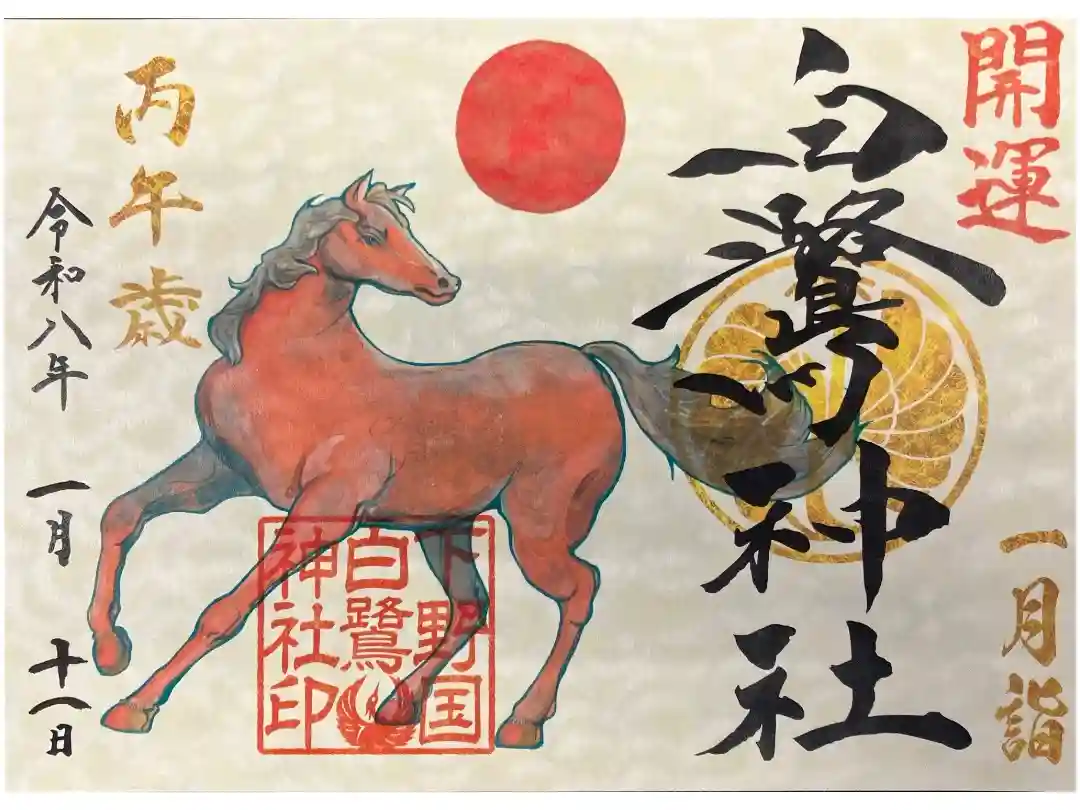 開運
一月詣
白鷺神社
下野国
白鷺
神社印
丙午歳
令和八年 一月 十一日